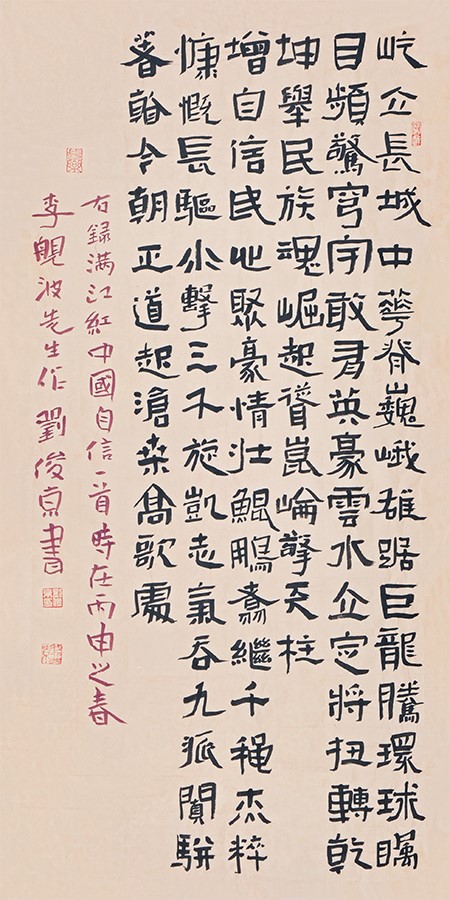 屹立長城中華脊巍峨雄踞巨龍騰環球矚
目頻驚穹宇敢君英豪雲水立定將扭轉乾
坤舉民族魂崛起聳崑崙擎天柱
增自信民心聚豪情壯鯤鵬翥繼千穐杰粹
慷慨長驅水擊三千旋凱志氣吞九派闐駢
蕃翰今朝正道起滄桒高歌處
右録满江紅中國自信一首時在丙申之春
李波先生作劉俊京書